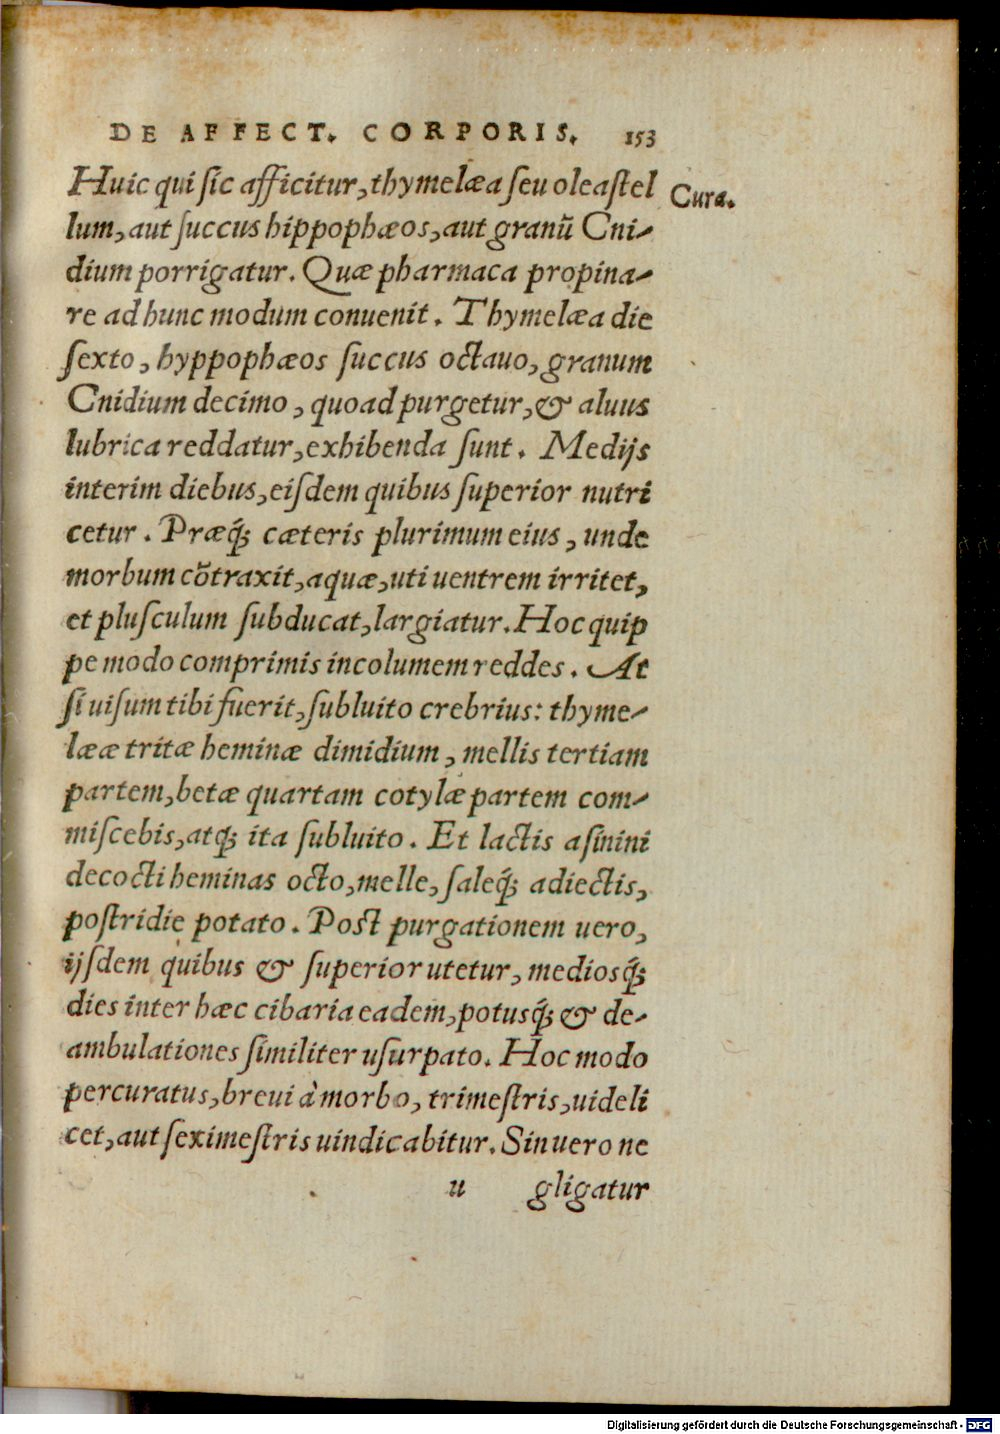 DE AFFECT. CORPORIS. 153
Huic qui sic afficitur, thymelæa seu oleastel
Cura.
lum, aut succus hippophæos, aut granũ Cni-
dium porrigatur. Quæ pharmaca propina-
re ad hunc modum conuenit. Thymelæa die
sexto, hyppophæos succus octauo, granum
Cnidium decimo, quoad purgetur, & aluus
lubrica reddatur, exhibenda sunt. Medijs
interim diebus, eisdem quibus superior nutri
cetur. Præq́; cæteris plurimum eius, unde
morbum cõtraxit, aquæ, uti uentrem irritet,
et plusculum subducat, largiatur. Hoc quip
pe modo comprimis incolumem reddes. At
si uisum tibi fuerit, subluito crebrius: thyme-
lææ tritæ heminæ dimidium, mellis tertiam
partem, betæ quartam cotylæ partem com-
miscebis, atq; ita subluito. Et lactis asinini
decocti heminas octo, melle, saleq́; adiectis,
postridie potato. Post purgationem uero,
ijsdem quibus & superior utetur, mediosq́;
dies inter hæc cibaria eadem, potusq́; & de-
ambulationes similiter usurpato. Hoc modo
percuratus, breui à morbo, trimestris, uideli
cet, aut seximestris uindicabitur. Sin uero ne
u gligatur
Digitalisierung gefördert durch die Deutsche Forschungsgemeinschaft - DFG